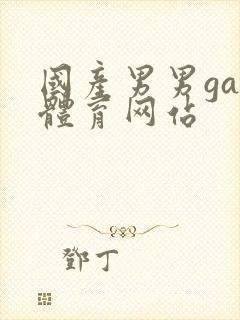 國產男男ga
體育网佔
鄧丁